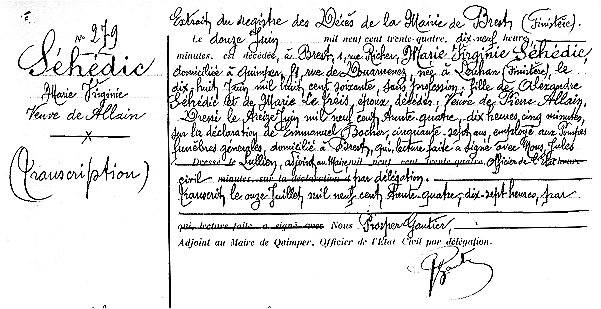 N° 279
Séhédic
Marie Virginie
Veuve de Allain
(Transcription)
Extrait du registre des Décès de la Mairie de Brest (Finistère).
Le douze Juin mil neuf cent trente-quatre, dix neuf heures
minutes, est décédée, à Brest, 1, rue Richer, Marie Virginie Séhédic,
domiciliée à Quimper, 71, rue de Douarnenez, née à Leuhan (Finistère), le
dix-huit Juin mil huit cent soixante, sans profession, fille de Alexandre
Séhédic et de Marie Le Frais, époux, décédés, Veuve de Pierre Allain,
Dressé le treize Juin mil neuf cent trente-quatre, dix heures, cinq minutes,
sur la déclaration de Emmanuel Bocher, cinquante-sept ans, employé aux Pompes
funèbres générales, domicilié à Brest, qui, lecture faite a signé avec Nous, Jules
Dressé le Lullien, adjoint au Maire, mil neuf cent trente quatre, Officier de l'Etat
civil minutes, sur la déclaration d par délégation.
Transcrit le onze Juillet mil neuf cent trente-quatre, dix-sept heures, par
qui, lecture faite, a signé avec Nous Prosper Gautier,
Adjoint au Maire de Quimper, Officier de l'Etat Civil par délégation.